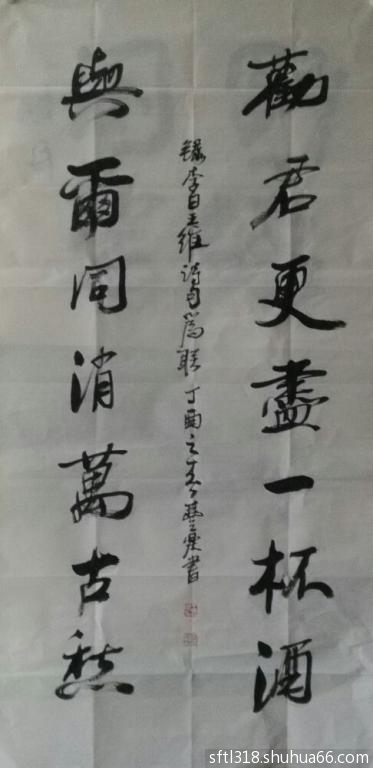 勸君更盡一杯酒
錄李白王維詩句為聯丁酉之春
書
與爾同消萬古愁
sftl318.shuhua66.com